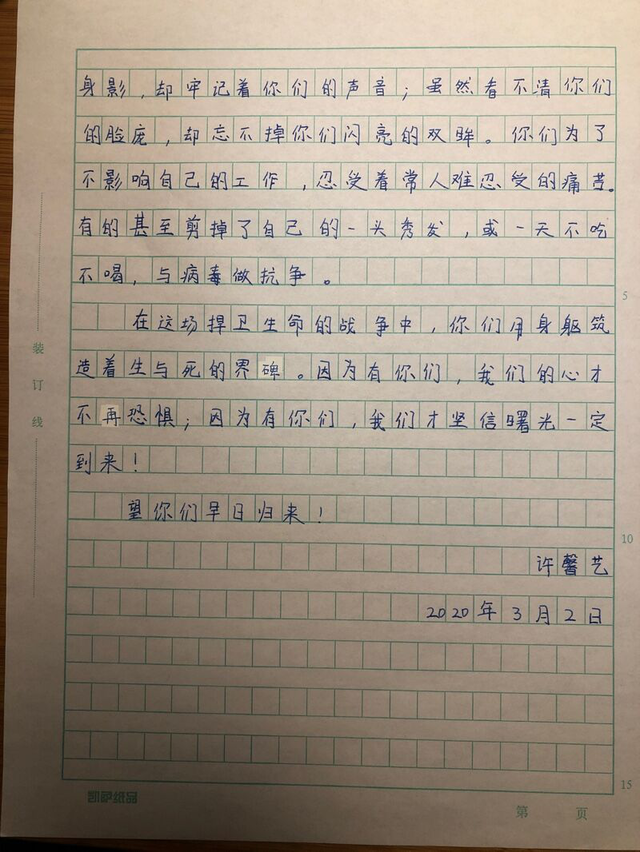 身影，却牢记着你们的声音；虽然看不清你们
的脸庞，却忘不掉你们闪亮的双眸。你们为了
不影响自己的工作，忍受着常人难忍受的痛苦。
有的甚至剪掉了自己的一头秀发，或一天不吃
不喝，与病毒做抗争。
在这场捍卫生命的战争中，你们用身躯筑
造着生与死的界碑。因为有你们，我们的心才
不再恐惧；因为有你们，我们才坚信曙光一定
到来！
望你们早日归来！
许馨艺
2020年3月2日
装
订
线
5
10
15
凯萨纸品
第 页